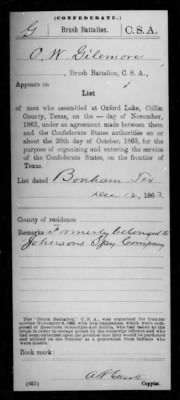 (CONFEDERATE.)
G Brush Battalion. C.S.A.
O. W. Gilemore
, Brush Battalion, C. S. A.,
Appears on
List
of men who assembled at Oxford Lake, Collin
County, Texas, on the — day of November,
1863, under an agreement made between them
and the Confederate States authorities on or
about the 20th day of October, 1863, for the
purpose of organizing and entering the service
of the Confederate States, on the frontier of
Texas.
List dated Bonham Tex
Dec 2, 1863
County of residence
Remarks Formerly belonged to
Johnsons Spy Company
The "Brush Battalion," C. S. A., was organized for frontier
service November 9, 1863, with five companies, which were com-
posed of deserters, conscripts and militia, who had taken to the
brush in order to escape arrest by the
and who had been
on the frontier as a
Book mark:
(635) Copyist.